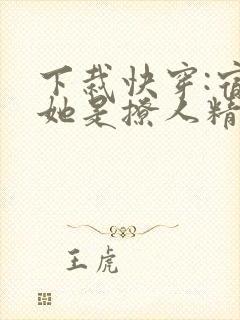 下裁快穿:宿
她是撩人精
王虎